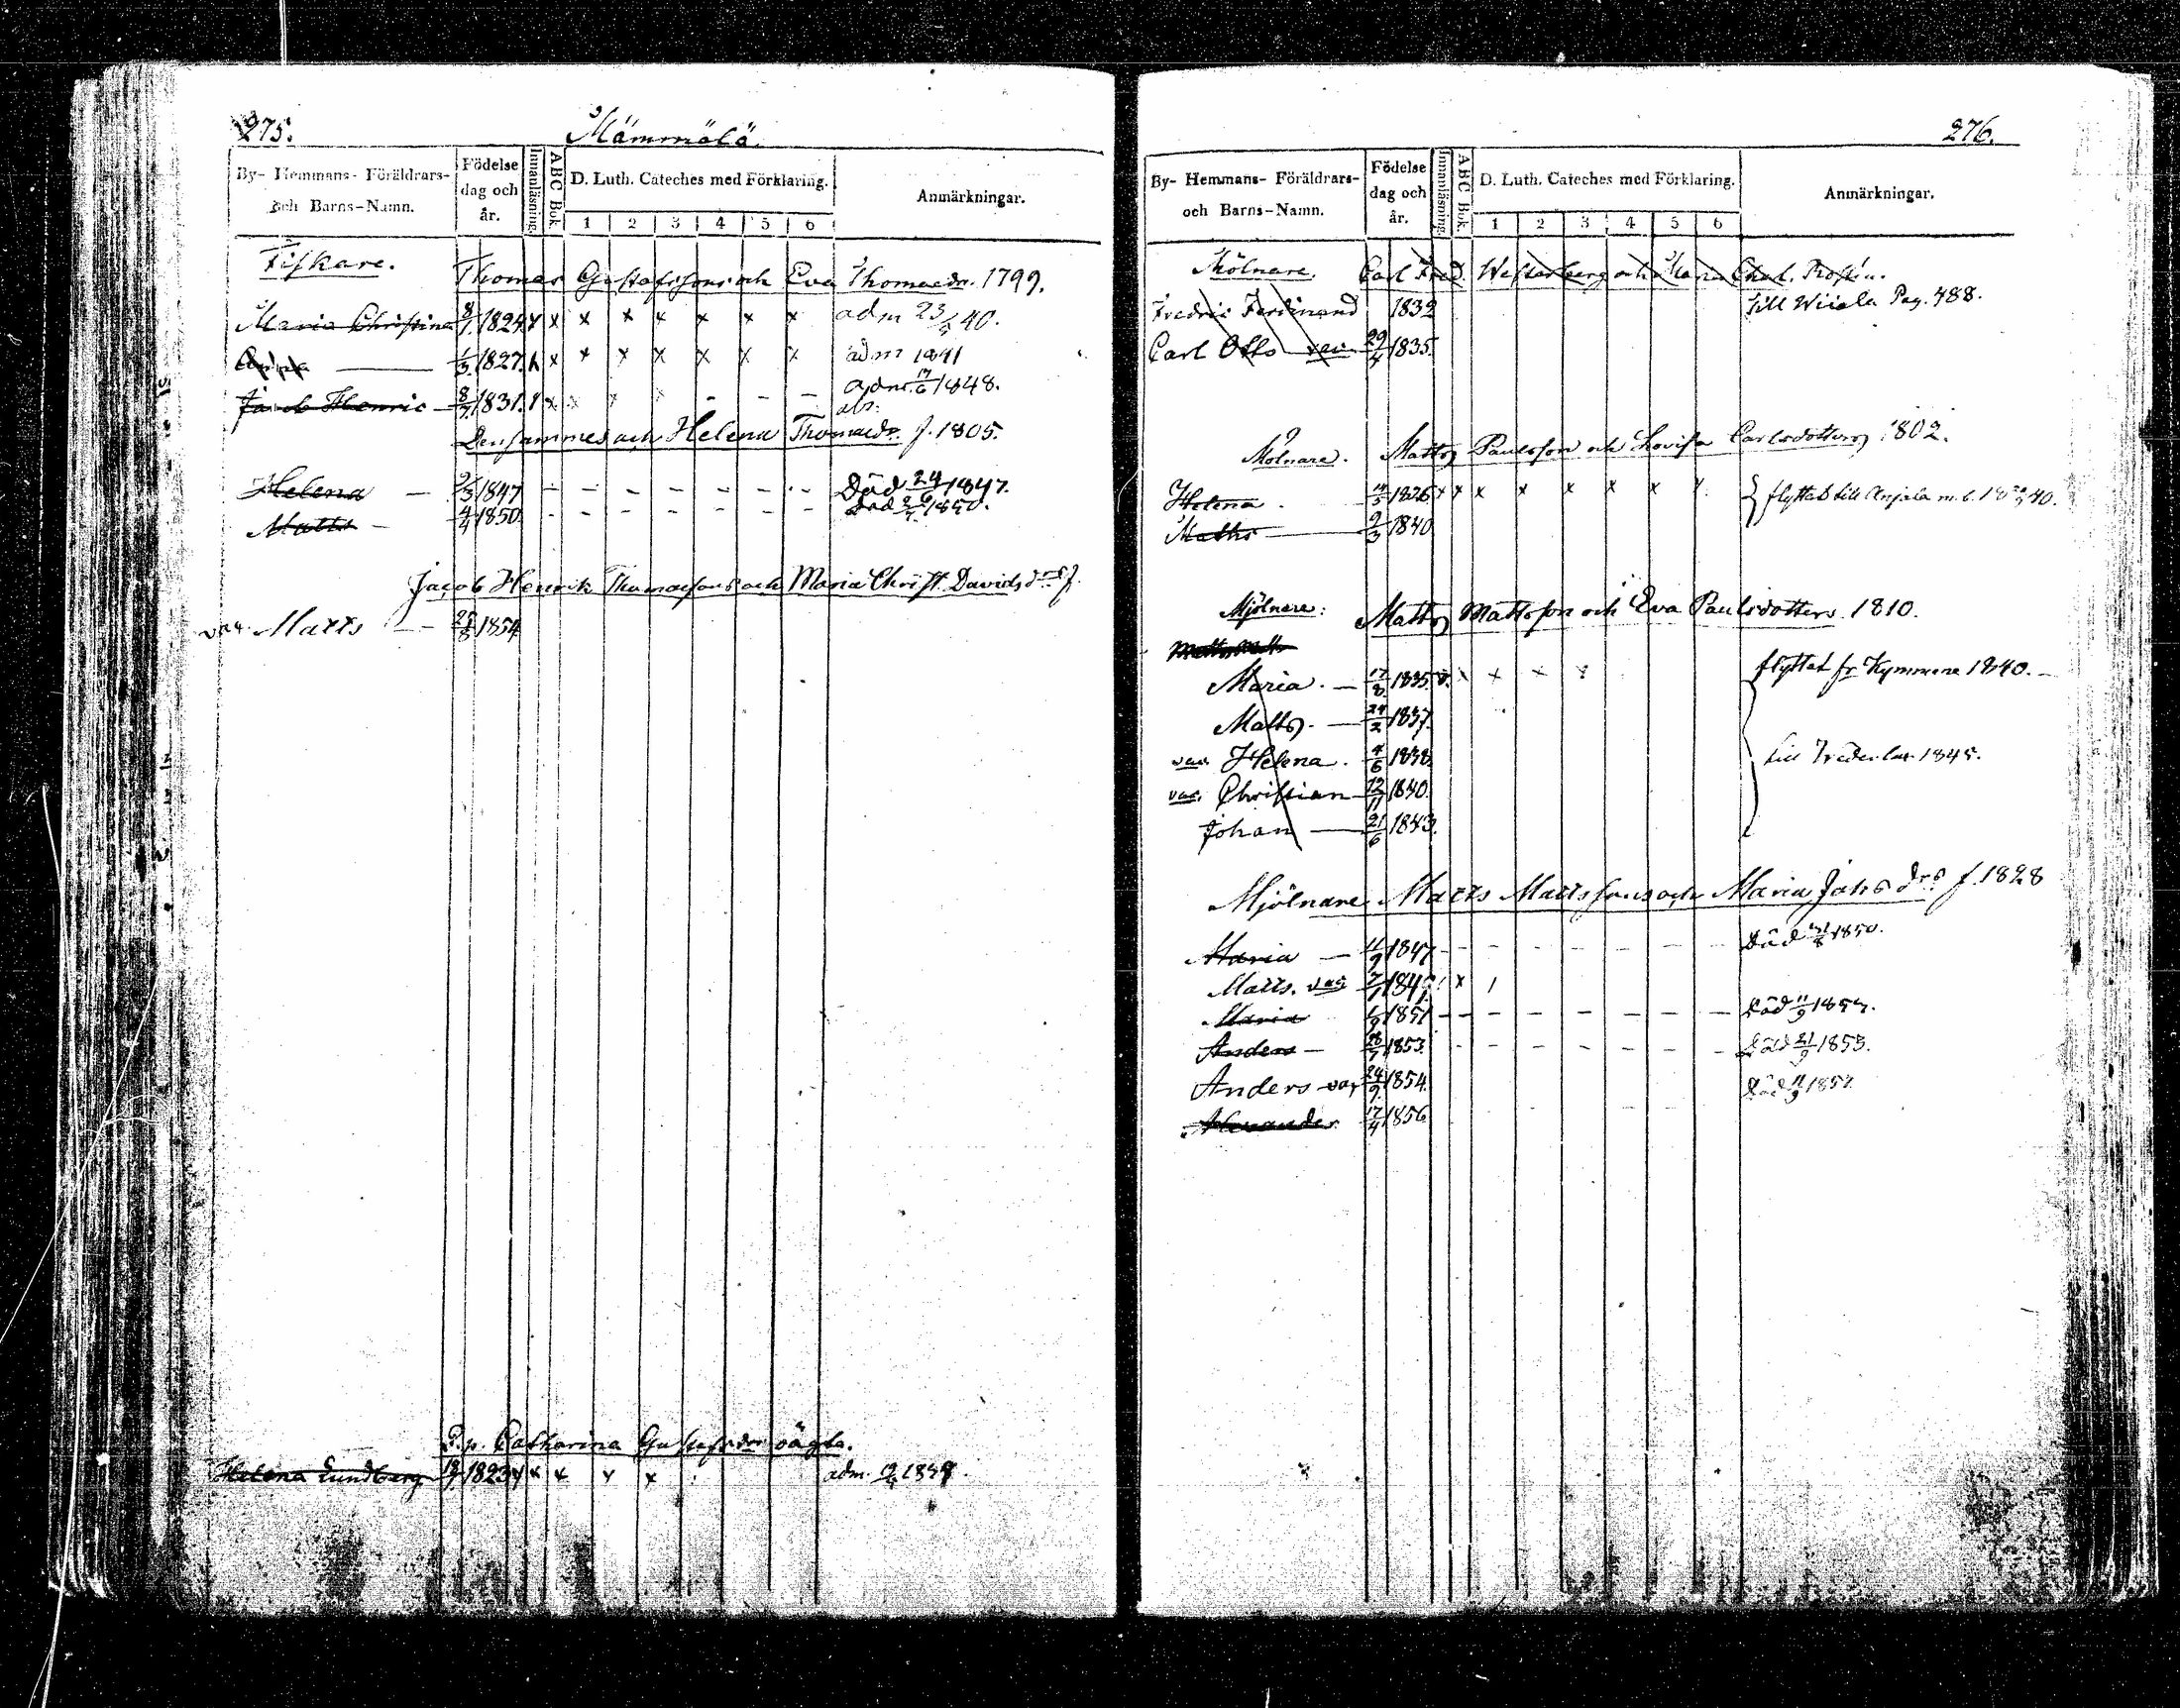 275.
Mämmälä
By- Hemmans- Föräldrars- och Barns-Namn.
Födelse dag och år.
Innanläsning.
ABC Bok.
D. Luth. Cateches med Förklaring.
1 2 3 4 5 6
Anmärkningar.
Fiskare. Thomas Gustafssons och Eva Thomaedr. 1799.
Maria Christina 8/1 1824 x x x x x x x adm 23/ 40.
Anna 1/3 1827 x x x x x x x adm 1841
Jacob Henric 8/7 1831 x x x x - - - adm. 17/6 1848.
Densammes och Helena Thomaedr. f. 1805.
Helena - 9/3 1847 - - - - - - - Död 24/6 1847.
Matts - 4/4 1850 - - - - - - - Död 1850.
Jacob Henrik Thomassons och Maria Christ. Davidsdrs f.
vac. Matts 28/8 1854
P.p. Catharina Gustafsdr oägta.
Helena Lundberg 1823 x x x x x adm. 1839.
276.
By- Hemmans- Föräldrars- och Barns-Namn.
Födelse dag och år.
Innanläsning.
ABC Bok.
D. Luth. Cateches med Förklaring.
1 2 3 4 5 6
Anmärkningar.
Mölnare. Carl Fred. Westerberg och Maria Charl.
Fredric Ferdinand 1832 till Wiiala Pag. 488.
Carl Otto 29/4 1835.
Mölnare. Matts Paulsson och Lovisa Carlsdotters 1802.
Helena 14/5 1826 x x x x x x x flyttat till Anjala m. b. 40.
Matts 9/3 1840
Mjölnare: Matts Mattsson och Eva Paulsdotters. 1810.
Maria. - 17/8 1835 x x x x flyttat fr Kymmene 1840. -
Matts. 24/2 1837.
vac. Helena. 4/6 1838
vac. Christian 12/11 1840 1845.
Johan 21/6 1843.
Mjölnare Matts Mattssons och Maria Jahsdrs f. 1828
Maria - 11/9 1847 - - - - - - - Död 1850.
Matts. vac 7/1 1849 x
Maria 1851 - - - - - - - Död 11/9 1857.
Anders - 28/7 1853. - - - - - - - Död 21/9 1853.
Anders vac 24/9 1854. Död 11/9 1857
Alexander 17/4 1856